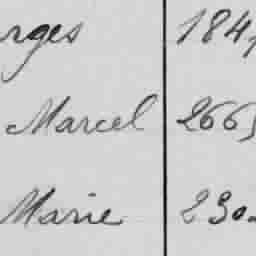 rges 184
Marcel 266
Marie 230